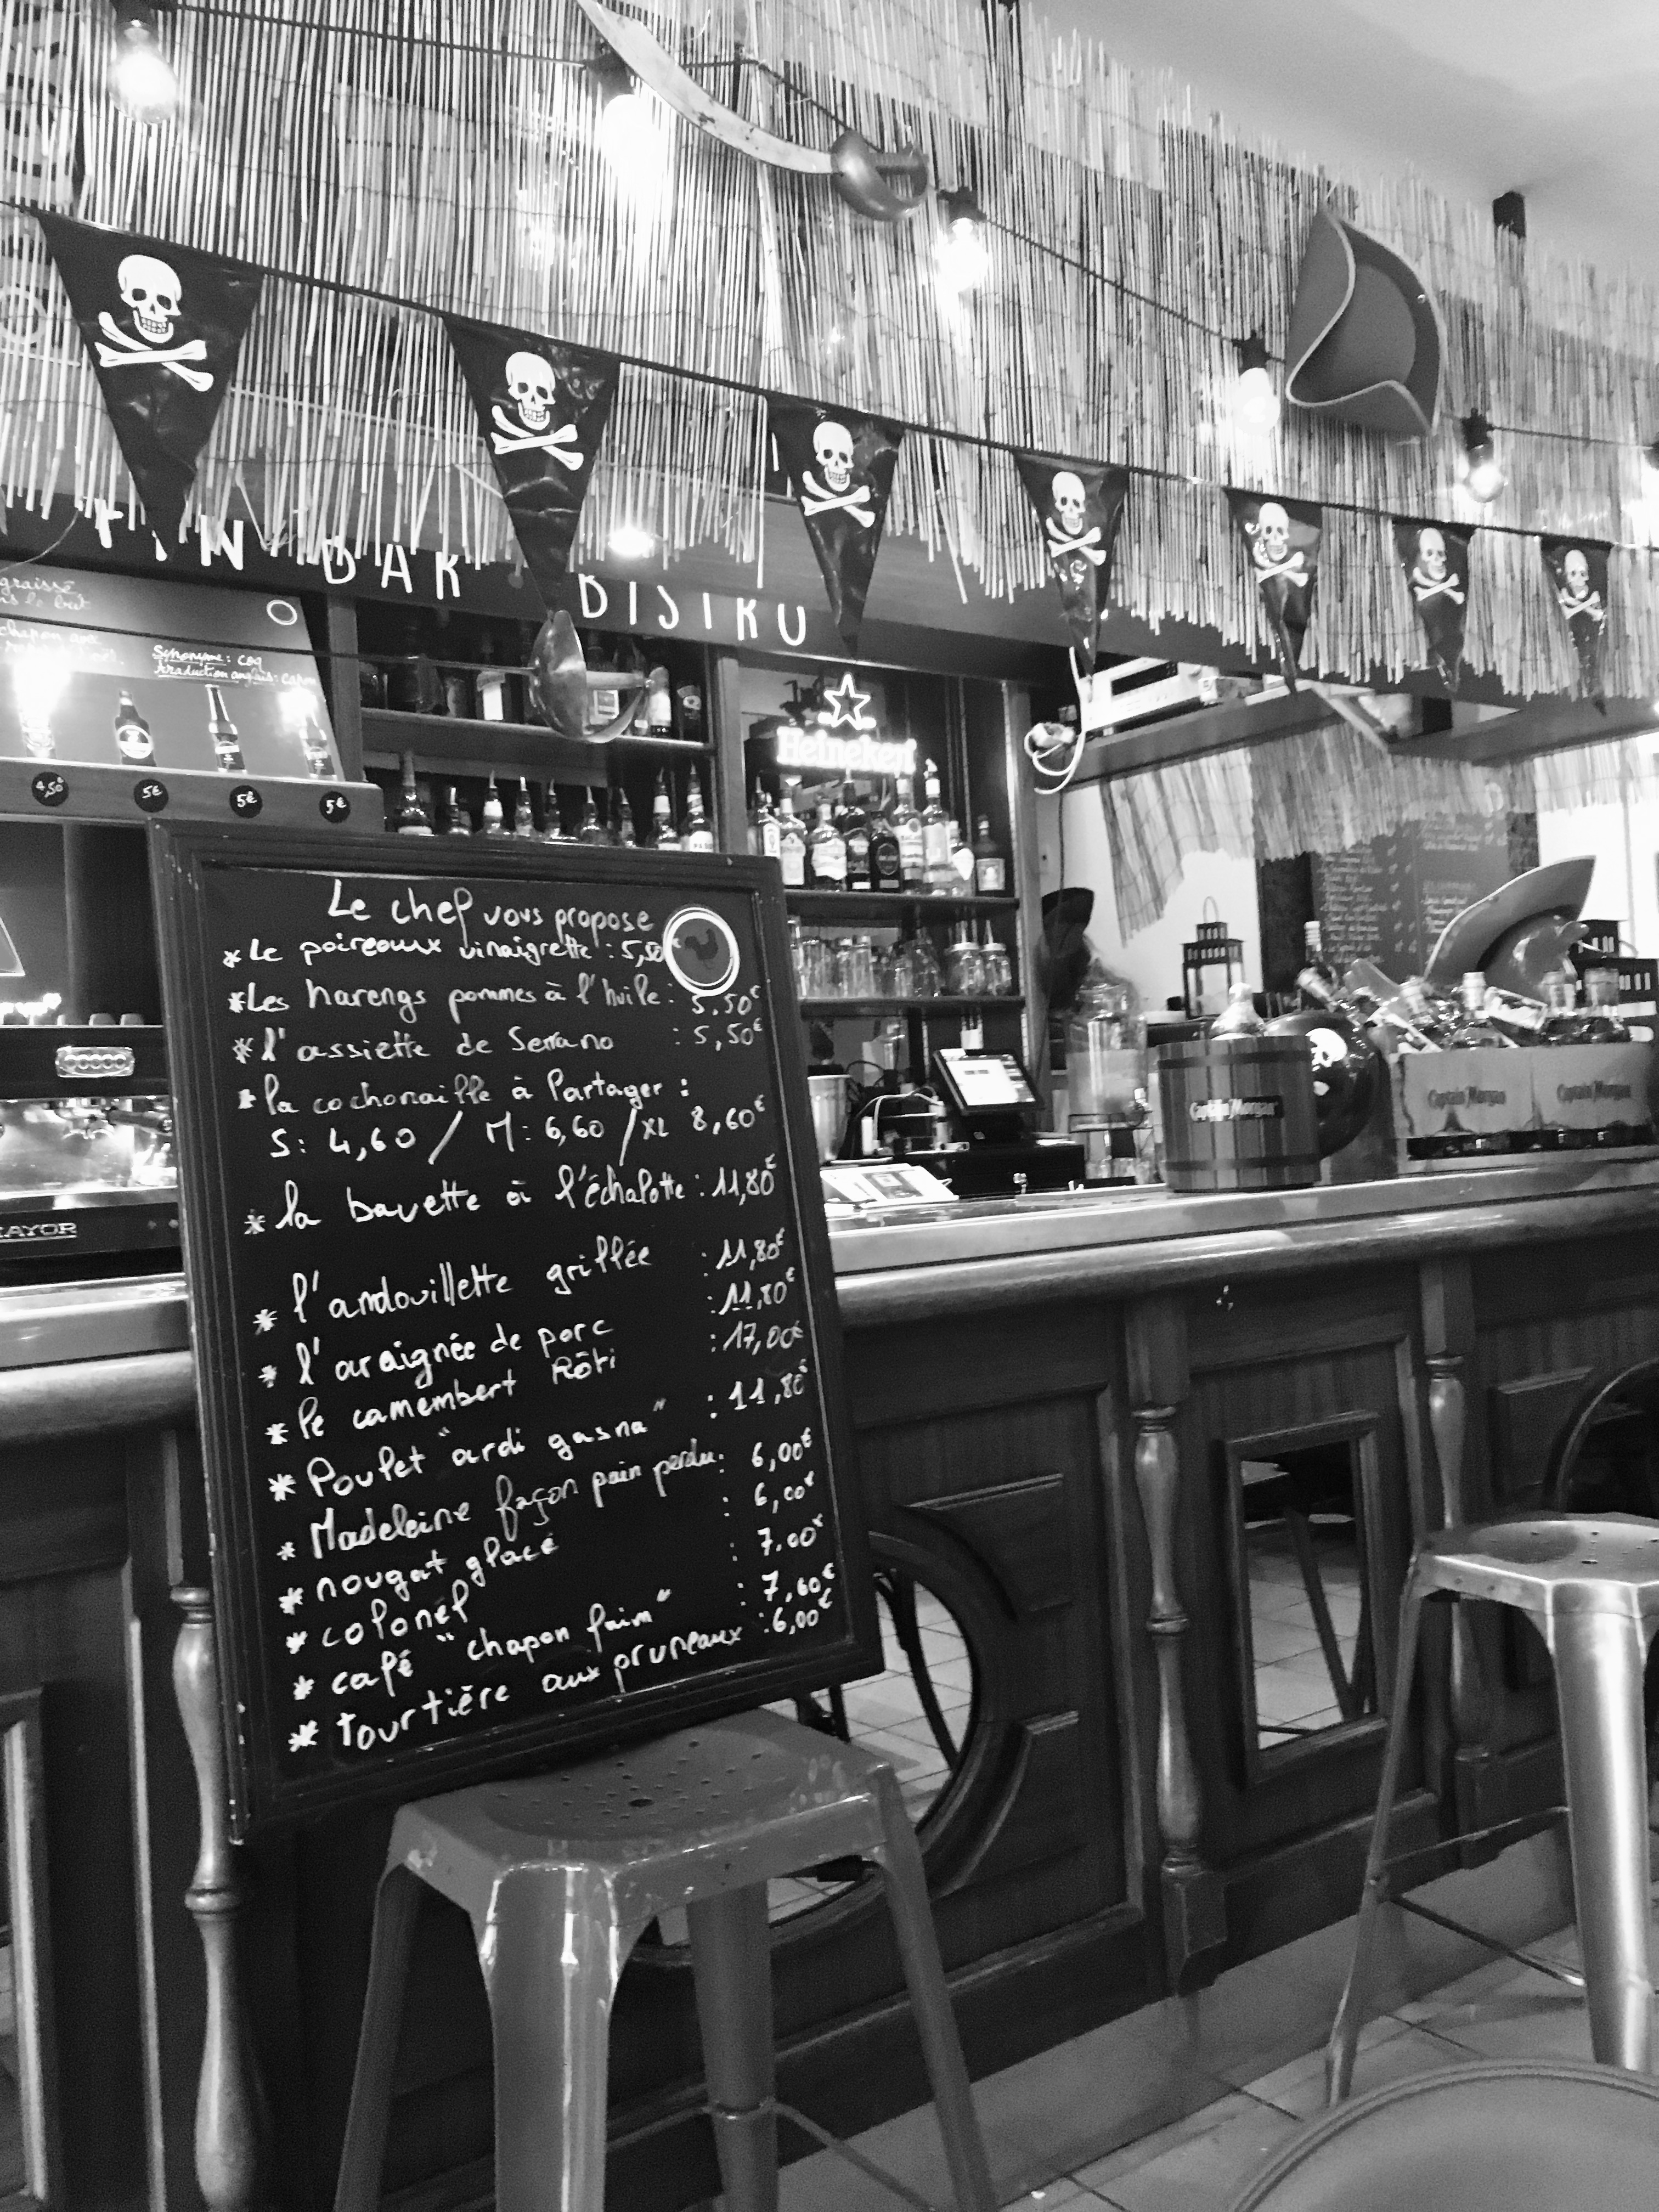 BAR BISTRO
graissé
Synonyme: coq
traduction anglais: capon
Heineken
4,50
5€
5€
5€
Le chef vous propose
*Le poireaux vinaigrette : 5,50€
*Les harengs pommes à l'huile : 5.50€
*l'assiette de Serrano : 5,50€
*la cochonaille à Partager :
S: 4,60 / M: 6,60 / XL 8,60€
*la bavette à l'échalotte : 11,80€
*l'andouillette grillée : 11,80€
*l'araignée de porc : 11,80€
*le camembert Rôti : 17,00€
*Poulet "ardi gasna" : 11,80€
*Madeleine façon pain perdu : 6,00€
*nougat glacé : 6,00€
*colonel : 7.00€
*café "chapon faim" : 7,60€
*tourtière aux pruneaux : 6,00€
Captain Morgan
Captain Morgan
Captain Morgan